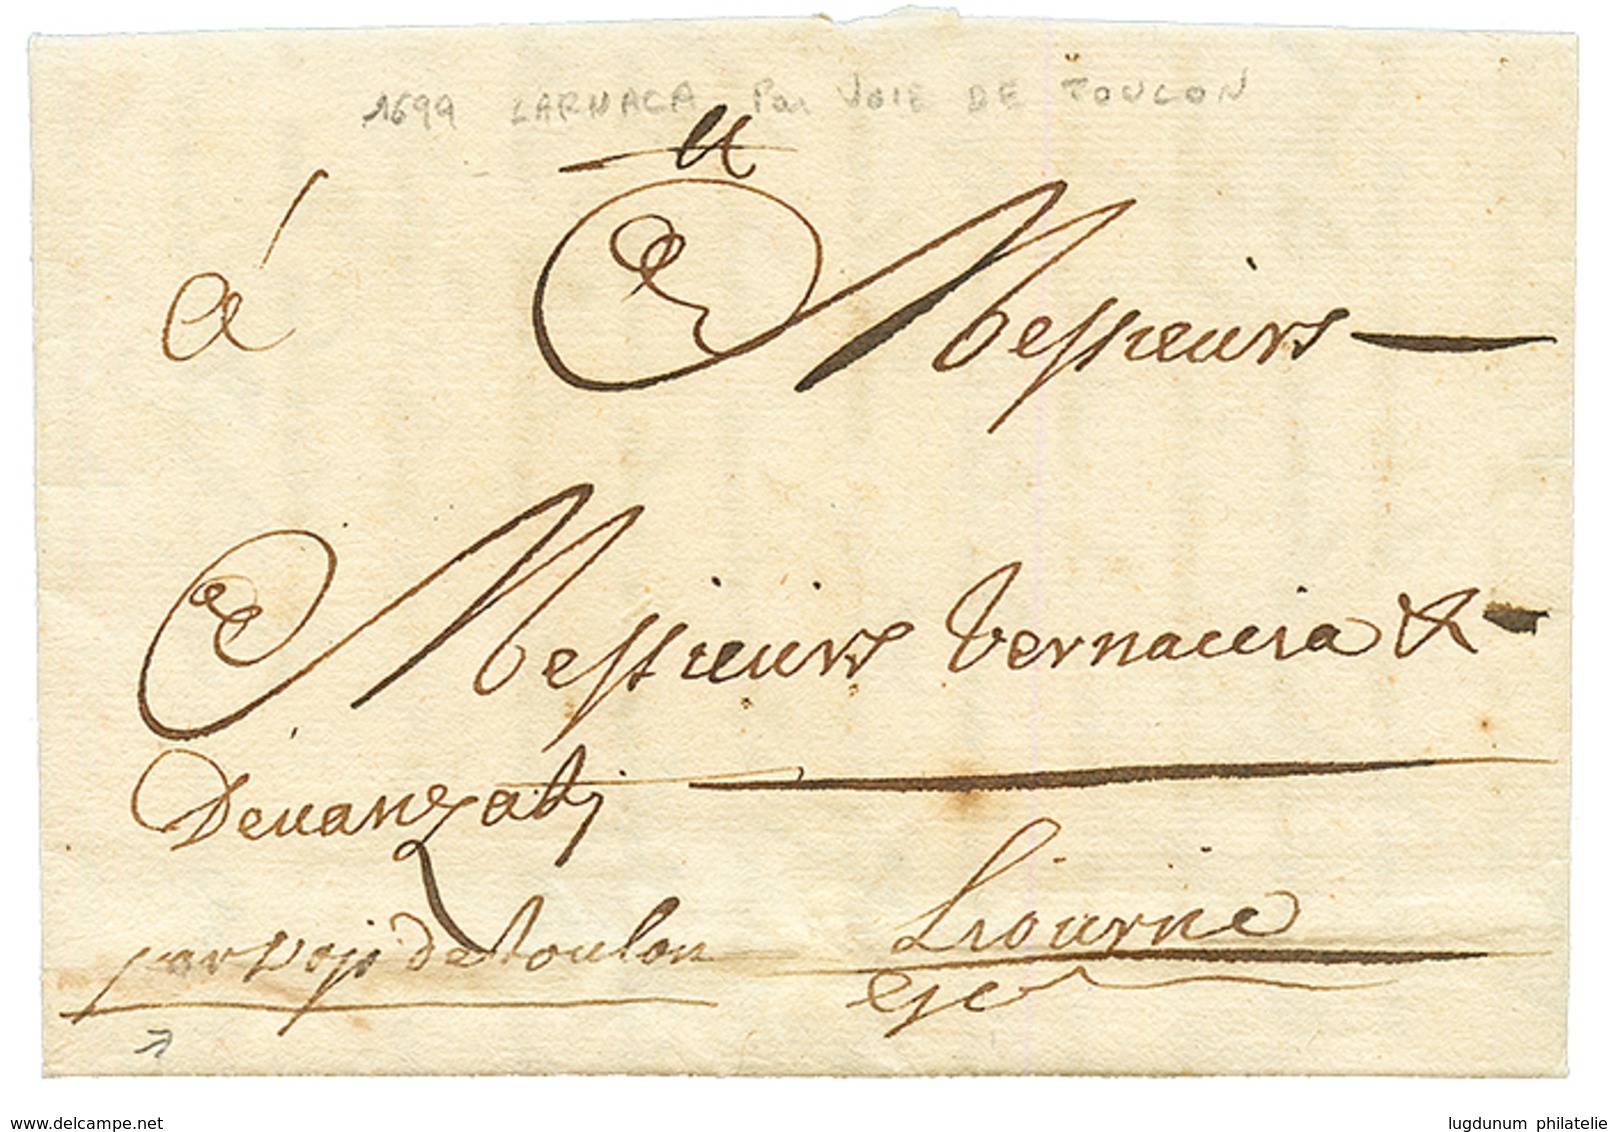 1699 LARNACA Par VOIE DE TOULON
á Messieurs
Messieurs Vernaccia &
Deuanzatj
Liourne
par voje de toulon
www.delcampe.net
lugdunum philatelie